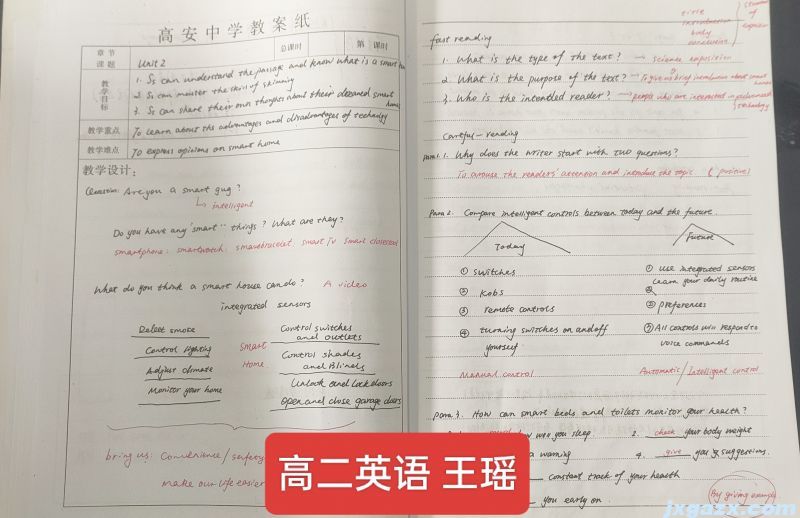 高安中学教案纸
章节
课题
Unit 2
总课时
第 课时
教学目标
1. Ss can understand the passage and know what is a smart home
2. Ss can master the skill of skimming
3. Ss can share their own thoughts about their dreamed smart home
教学重点
To learn about the advantages and disadvantages of technology
教学难点
To express opinions on smart home
教学设计：
Question: Are you a smart guy?
intelligent
Do you have any "smart" things? What are they?
smartphone; smartwatch; smartbracelet, smart TV smart
What do you think a smart house can do? A video
integrated sensors
Detect smoke
Control lighting
Adjust climate
Monitor your home
Smart
Home
Control switches
and outlets
Control shades
and Blinds
Unlock and lock doors
Open and close garage doors
bring us: Convenience / safety
make our life easier
title
introduction
body
conclusion
of
fast reading
1. What is the type of the text? → Science exposition
2. What is the purpose of the text? → To give us brief introduction about smart homes
3. Who is the intended reader? → people who are interested in advanced technology
Careful-reading
Para1. 1. Why does the writer start with two questions?
To arouse the readers' attention and introduce the topic (positive)
Para 2. Compare intelligent controls between today and the future.
Today
Future
① switches
② Kobs
③ remote controls
④ turning switches on and off
yourself
① use integrated sensors
② learn your daily routine
② preferences
③ All controls will respond to
voice commands
Manual control
Automatic/Intelligent control
Para 3. How can smart beds and toilets monitor your health?
how well you sleep.
2. check your body weight
a warning
4. give you suggestions.
constant track of your health
you early on.
By giving example
高二英语 王瑶
jxgazx.com